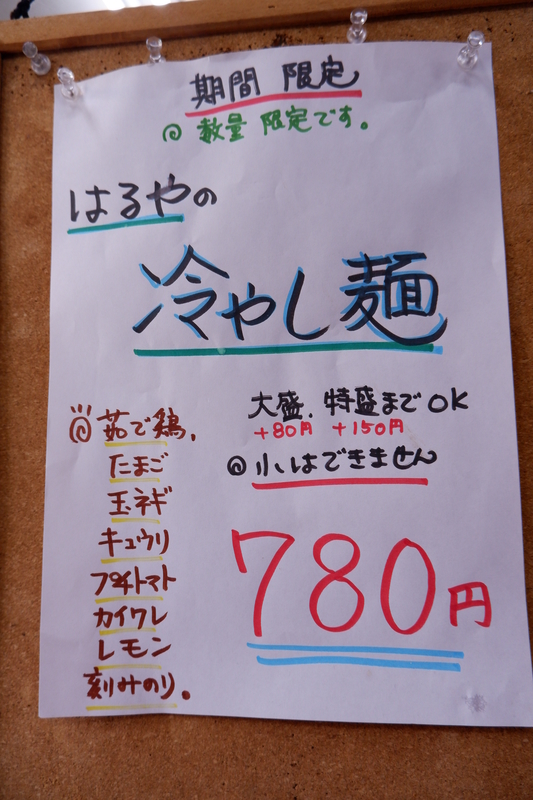 期間 限定
◎ 数量 限定です。
はるやの
冷やし麺
大盛. 特盛まで OK
+80円 +150円
◎ 小はできません
◎ 茹で鶏.
たまご
玉ネギ
キュウリ
プチトマト
カイワレ
レモン
刻みのり。
780円